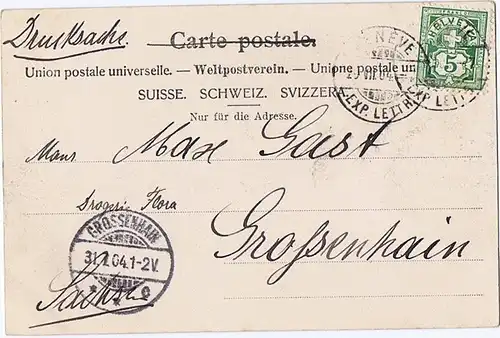 Drucksache.
Carte postale.
Union postale universelle. — Weltpostverein. — Unione postale un
SUISSE. SCHWEIZ. SVIZZERA
Nur für die Adresse.
HELVETIA
5
NÈVE
VII.04
EXP. LETTR
EXP. LETTR
Max Gast
Drogerie Flora
Grossenhain
GROSSENHAIN
31.7.04.1-2V.
* * c
Sachsen